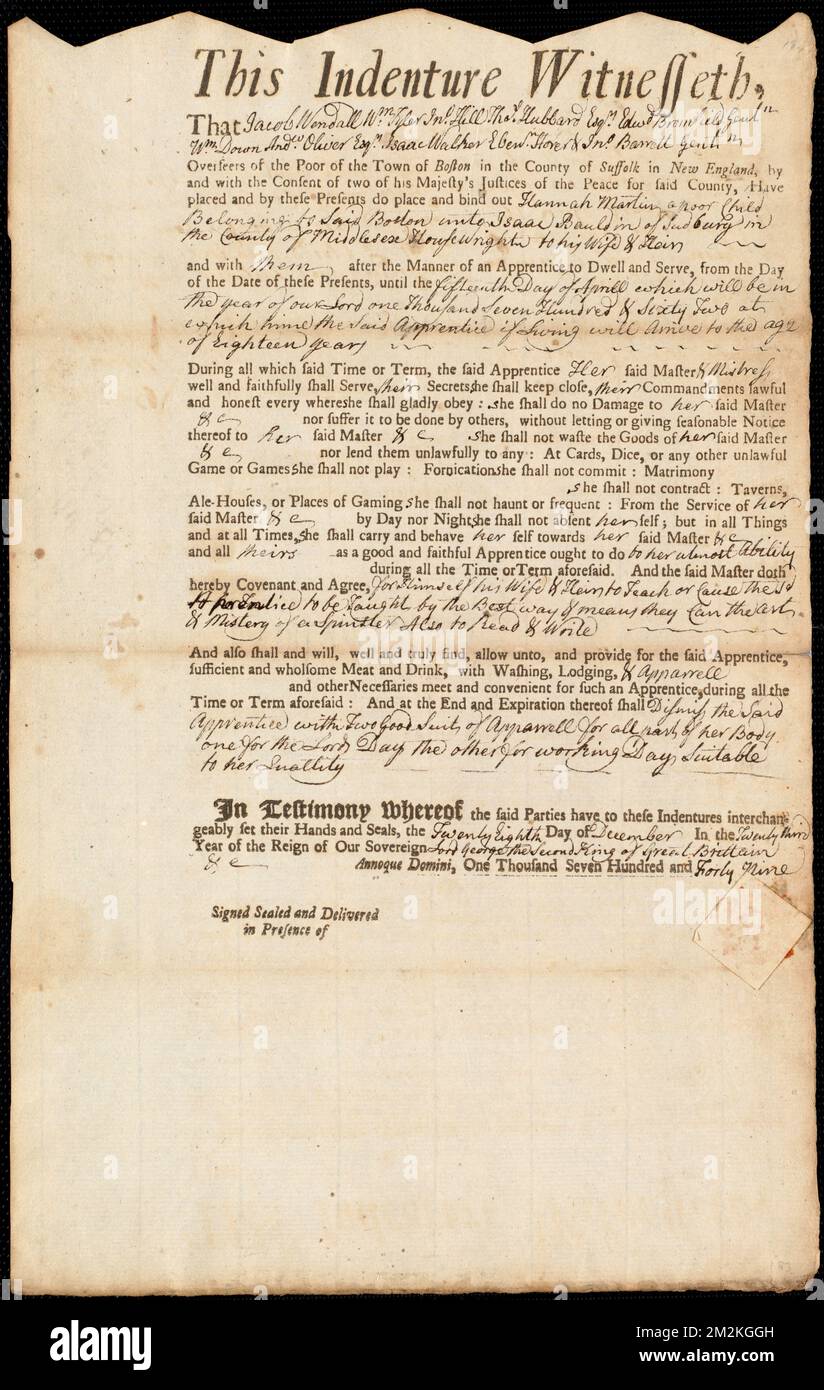 This Indenture Witnesseth,
That Jacob Wendall Wm. Tyler Jno. Hill Thos. Hubbard Esqrs. Edwd. Bromfield Gentn
Wm. Down Andw. Oliver Esqr. Isaac Walker Ebenr. Storer & Jno. Barrell Gentln
Overseers of the Poor of the Town of Boston in the County of Suffolk in New England, by
and with the Consent of two of his Majesty's Justices of the Peace for said County, Have
placed and by these Presents do place and bind out Hannah Martin a poor Child
Belonging to Said Boston unto Isaac Bauldin of Sudbury in
the County of Middlesex House Wright & to his Wife & Heirs
and with them after the Manner of an Apprentice to Dwell and Serve, from the Day
of the Date of these Presents, until the fifteenth Day of Aprill which will be in
the year of our Lord one Thousand Seven Hundred & Sixty Two at
which time the Said Apprentice if Living will Arrive to the age
of Eighteen years
During all which said Time or Term, the said Apprentice Her said Master & Mistress
well and faithfully shall Serve, their Secrets she shall keep close, their Commandments lawful
and honest every where she shall gladly obey: she shall do no Damage to her said Master
&c nor suffer it to be done by others, without letting or giving seasonable Notice
thereof to her said Master &c She shall not waste the Goods of her said Master
&c nor lend them unlawfully to any: At Cards, Dice, or any other unlawful
Game or Games she shall not play: Fornication she shall not commit: Matrimony
she shall not contract: Taverns,
Ale-Houses, or Places of Gaming she shall not haunt or frequent: From the Service of her
said Master &c by Day nor Night she shall not absent her self; but in all Things
and at all Times, she shall carry and behave her self towards her said Master &c
and all theirs as a good and faithful Apprentice ought to do to her utmost Ability
during all the Time or Term aforesaid. And the said Master doth
hereby Covenant and Agree, for Himself his Wife & Heirs to Teach or Cause the Sd
Aprentice to be Taught by the Best way & means they Can the art
& Mistery of a Spinster Also to Read & Write
And also shall and will, well and truly find, allow unto, and provide for the said Apprentice,
sufficient and wholsome Meat and Drink, with Washing, Lodging, & Apparrell
and other Necessaries meet and convenient for such an Apprentice, during all the
Time or Term aforesaid: And at the End and Expiration thereof shall Dismiss the Said
Apprentice with Two Good Suits of Apparrell for all parts of her Body
one for the Lords Days the other for working Days Suitable
to her Quallity
In Testimony whereof the said Parties have to these Indentures interchan-
geably set their Hands and Seals, the Twenty Eighth Day of December In the Twenty third
Year of the Reign of Our Sovereign Lord George the Second King of Great Brittain
&c Annoque Domini, One Thousand Seven Hundred and Forty Nine
Signed Sealed and Delivered
in Presence of
alamy
Image ID: 2M2KGGH
www.alamy.com